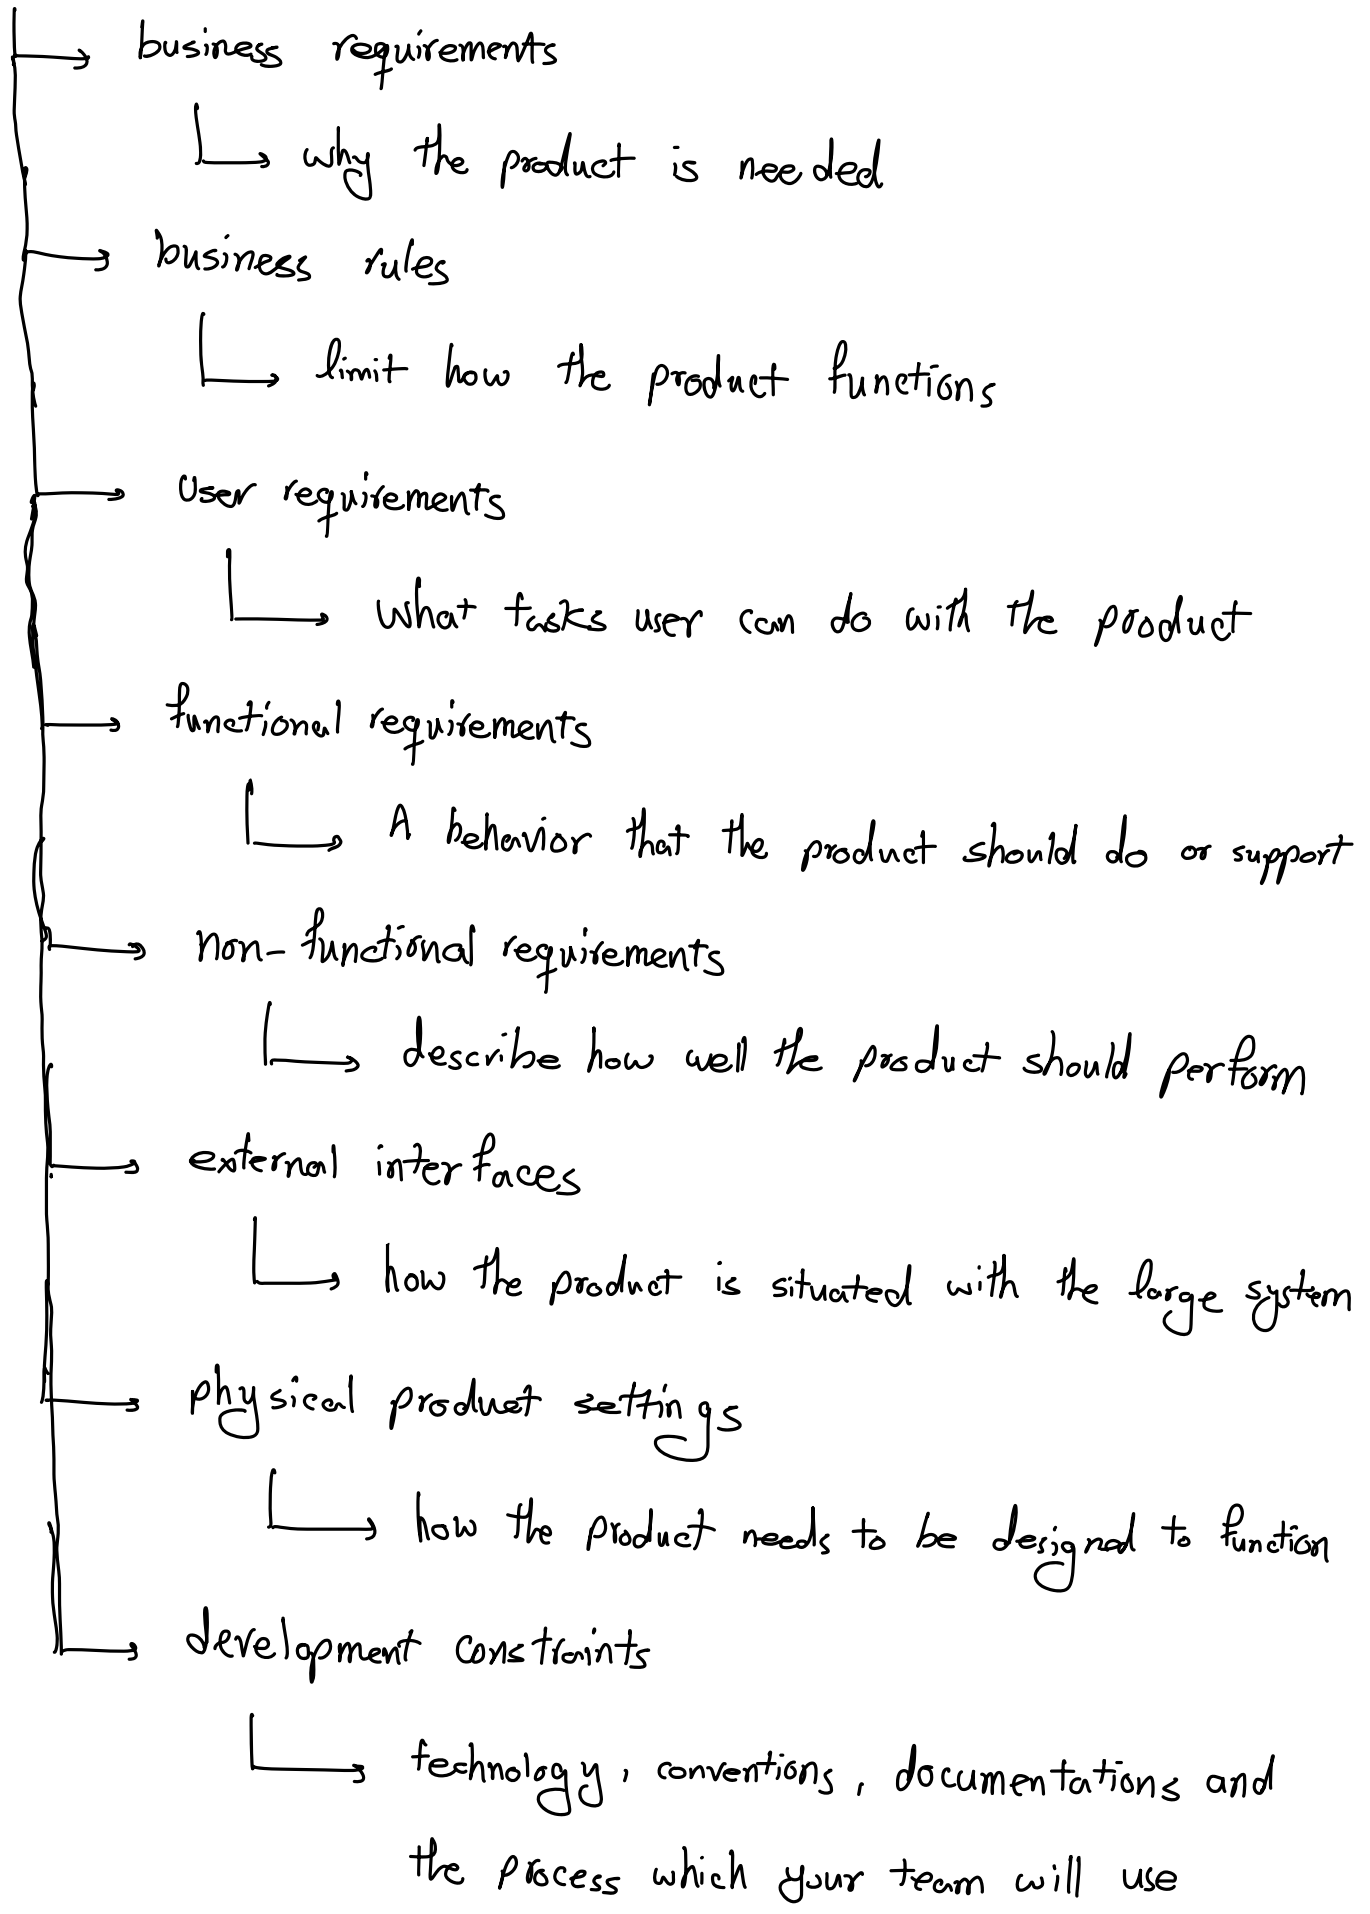 business requirements
why the product is needed
business rules
limit how the product functions
User requirements
what tasks user can do with the product
functional requirements
A behavior that the product should do or support
non-functional requirements
describe how well the product should perform
external interfaces
how the product is situated with the large system
physical product settings
how the product needs to be designed to function
development constraints
technology, conventions, documentations and
the process which your team will use